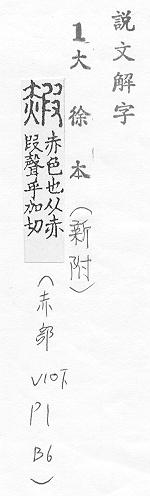 說文解字
1大徐本(新附)
赮
赤色也从赤
叚聲乎加切
(赤部 V10下 P1 B6)